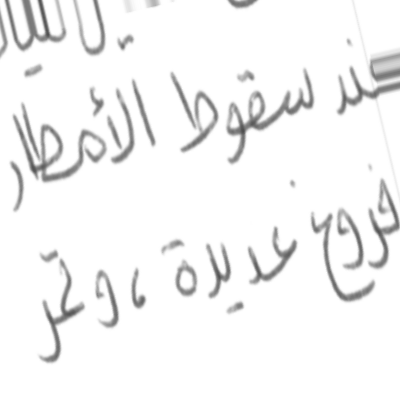 عند سقوط الأمطار
فروع عديدة ، وتمر